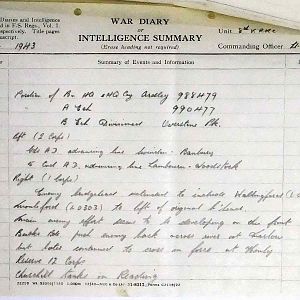 Diaries and Intelligence
d in F.S. Regs., Vol. I.
respectively. Title pages
uscript.
WAR DIARY
or
INTELLIGENCE SUMMARY
(Erase heading not required)
Unit
Commanding Officer
1943
Summary of Events and Information
Position of Bn HQ & HQ Coy Ardley 988479
A Ech 990477
B Ech Overstone Pk.
left (2 Corps)
Gds A.D. advancing line Swindon - Banbury
A.D. advancing line Lambourn - Woodstock
Right (1 Corps)
Enemy bridgehead extended to include Wallingford
(L0303) to left of original
Main enemy effort seems to be developing on the front
Bucks Bn push enemy back across river at Marlow
but Notes continued to cross in force at Henley
Reserve 12 Corps
Churchill tanks on Reading